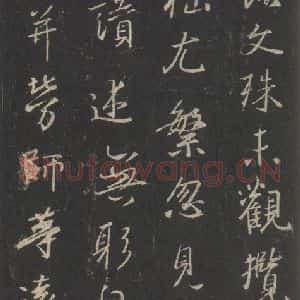 文殊未觀攬
拙尤繁忽見
讚述撫躬自
并勞師等遠
shufawang.CN